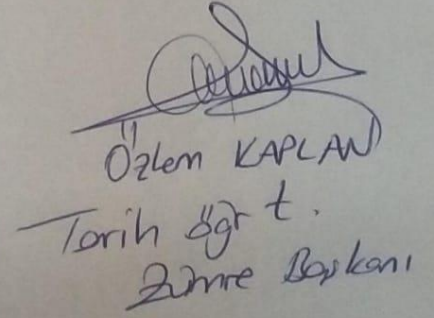 Özlem KAPLAN
Tarih öğrt.
Zümre Başkanı